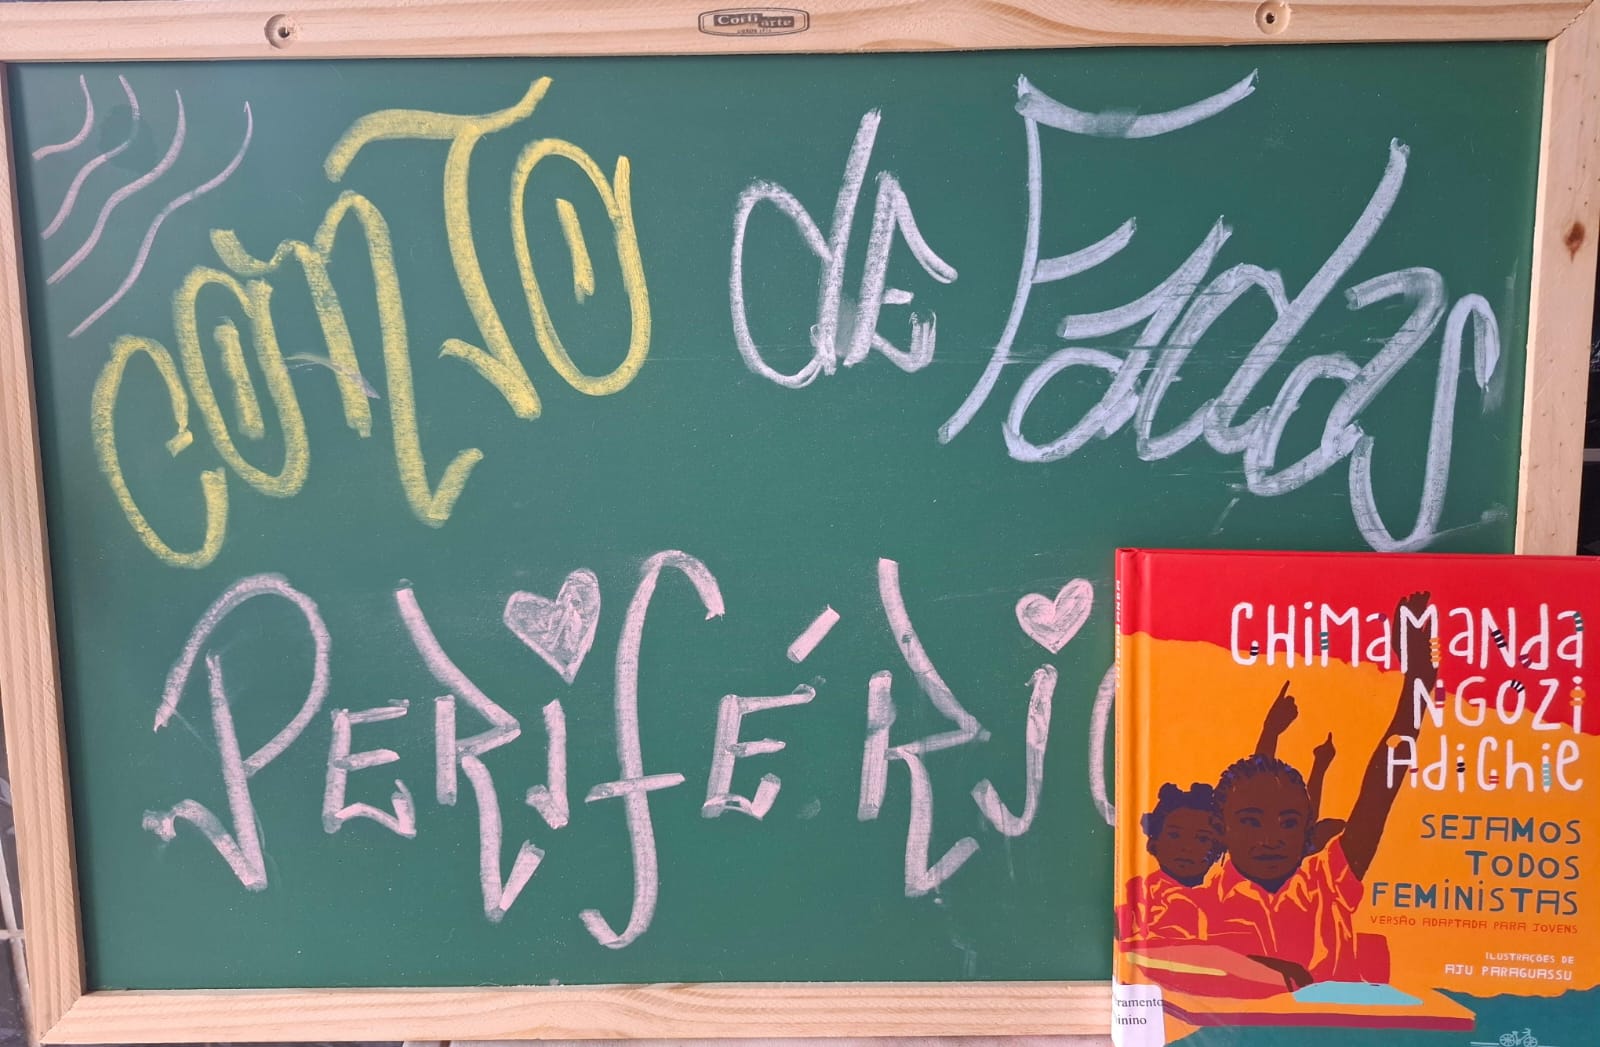 Corfiarte
CONTO de Fadas
PERIFÉRIC
CHIMAMANDA
NGOZI
ADICHIE
SEJAMOS
TODOS
FEMINISTAS
VERSÃO ADAPTADA PARA JOVENS
ILUSTRAÇÕES DE
AJU PARAGUASSU
ramento
inino